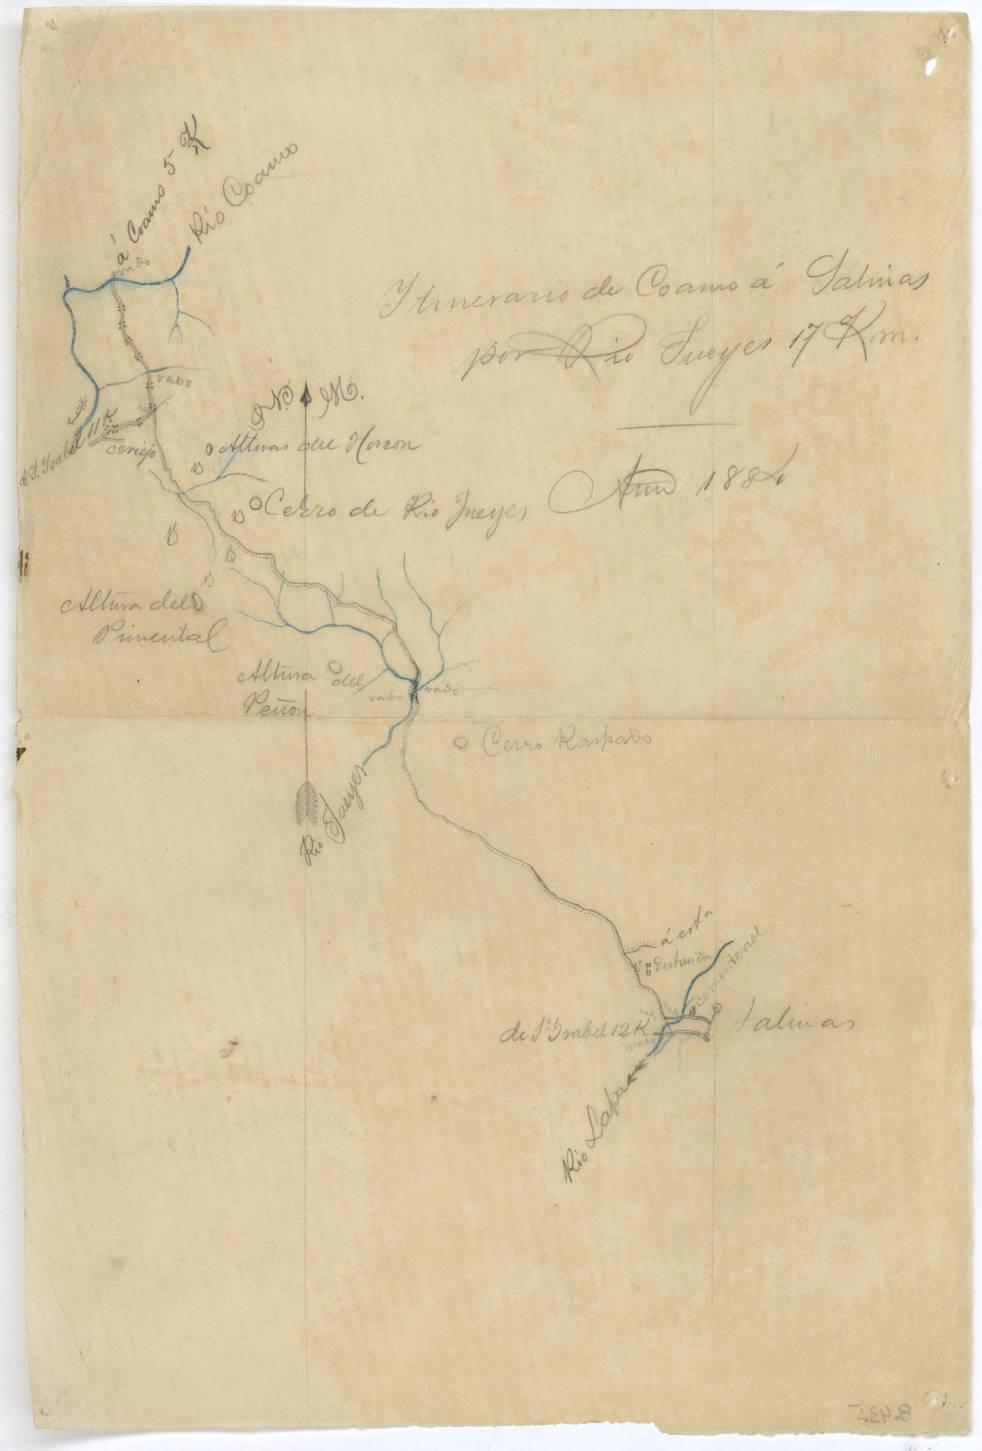 á Coamo 5 K
Rio Coamo
vado
Itinerario de Coamo á Salinas
por Rio Jueyes 17 Km.
Año 1884
vado
N. M.
de S. Isabel 11 K
Alturas del Horcon
Cerro de Rio Jueyes
Altura del
Pimental
Altura del
Peñon
vado
vado
Cerro Raspado
Rio Jueyes
á esta
destruida
cementerio
de Sª Ysabel 12 K
vado
Salinas
Rio Lapa
B-43-I